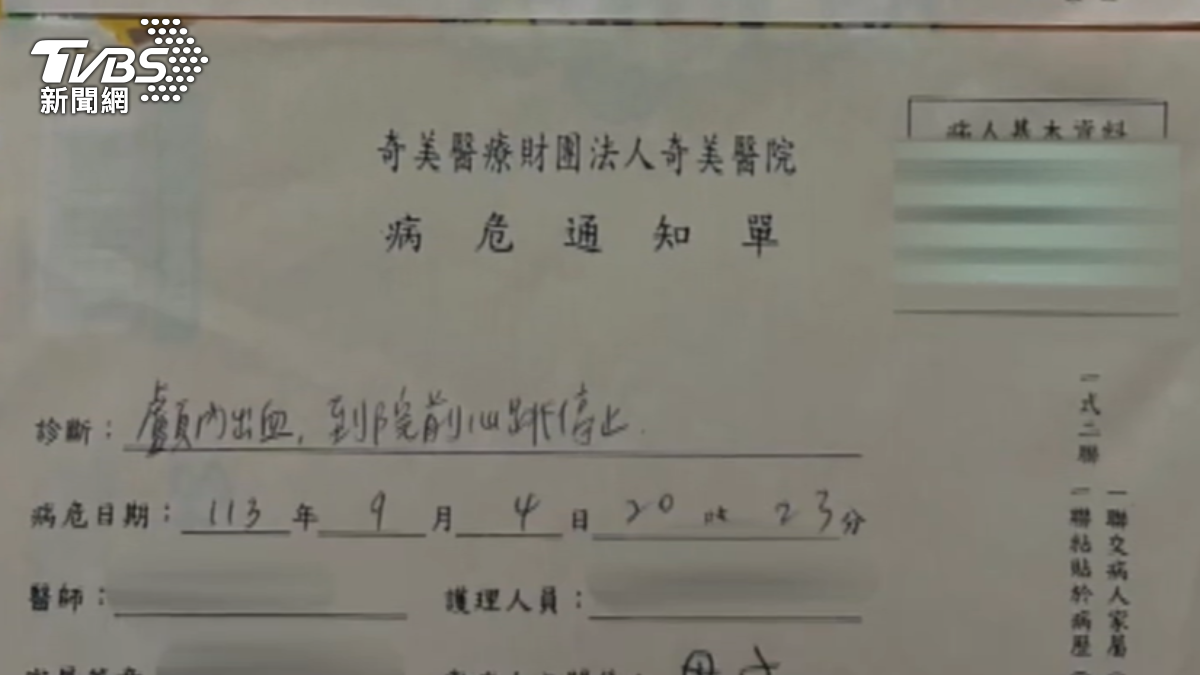 TVBS
新聞網
病人基本資料
奇美醫療財團法人奇美醫院
病危通知單
診斷：顱內出血，到院前心跳停止.
病危日期：113年9月4日20時23分
醫師：
護理人員：
一式二聯
一聯交病人家屬
一聯粘貼於病歷